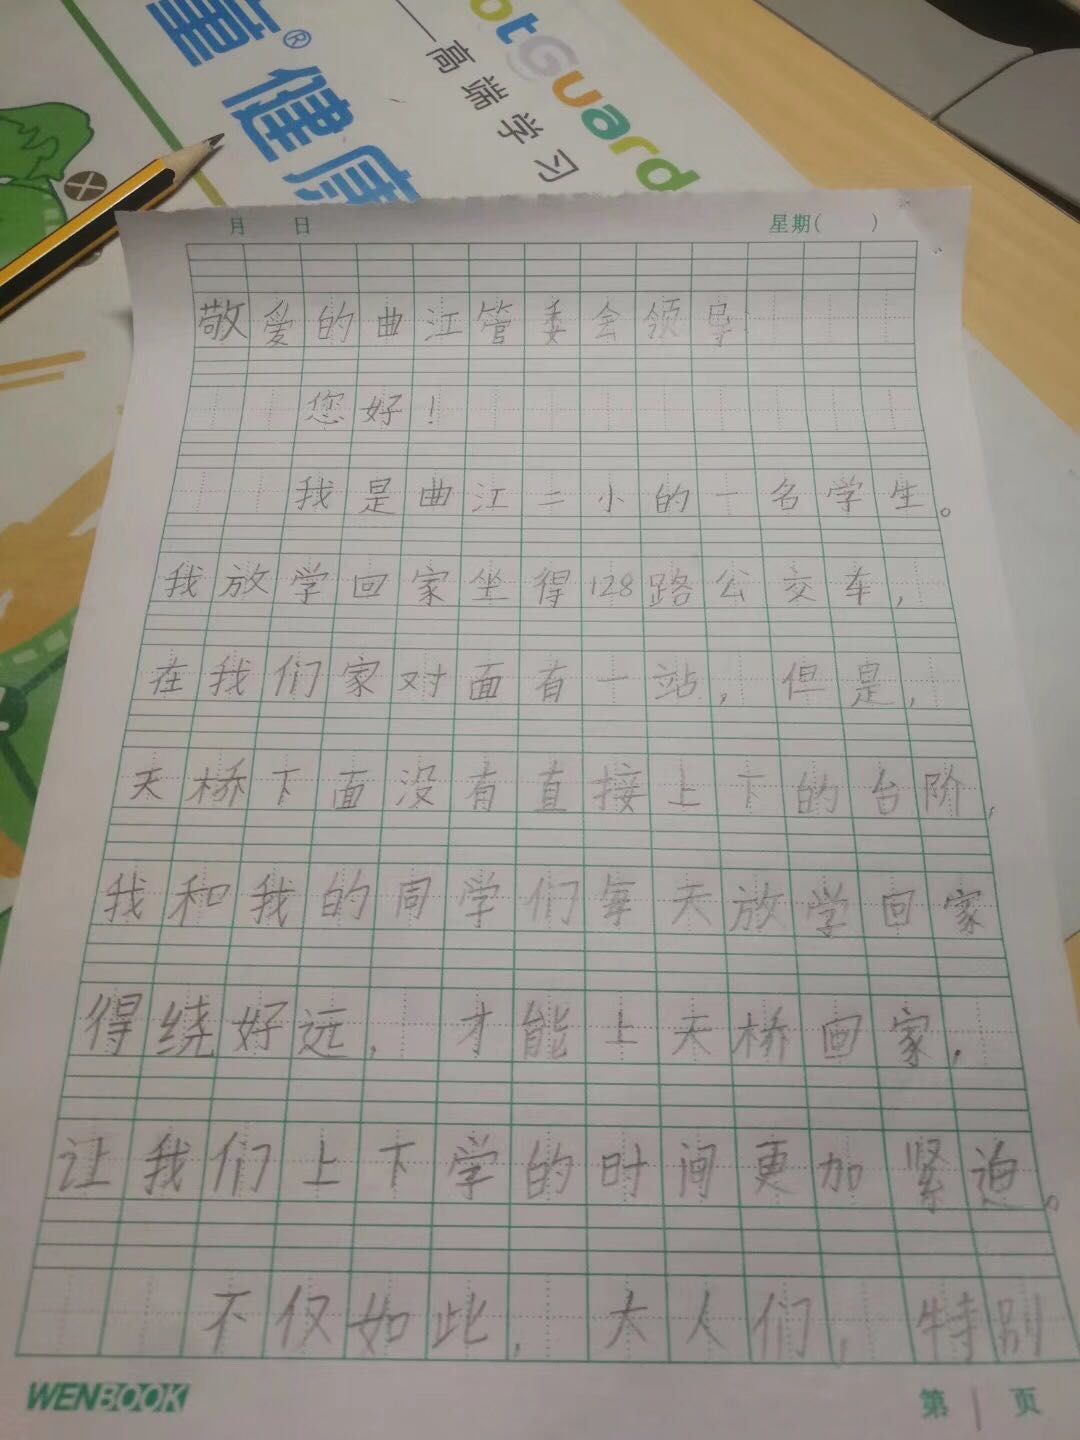 童®健康
otGuard
高端学习
月 日 星期( )
敬爱的曲江管委会领导:
您好!
我是曲江二小的一名学生。
我放学回家坐得128路公交车,
在我们家对面有一站,但是,
天桥下面没有直接上下的台阶,
我和我的同学们每天放学回家
得绕好远,才能上天桥回家,
让我们上下学的时间更加紧迫。
不仅如此,大人们,特别
WENBOOK 第1页